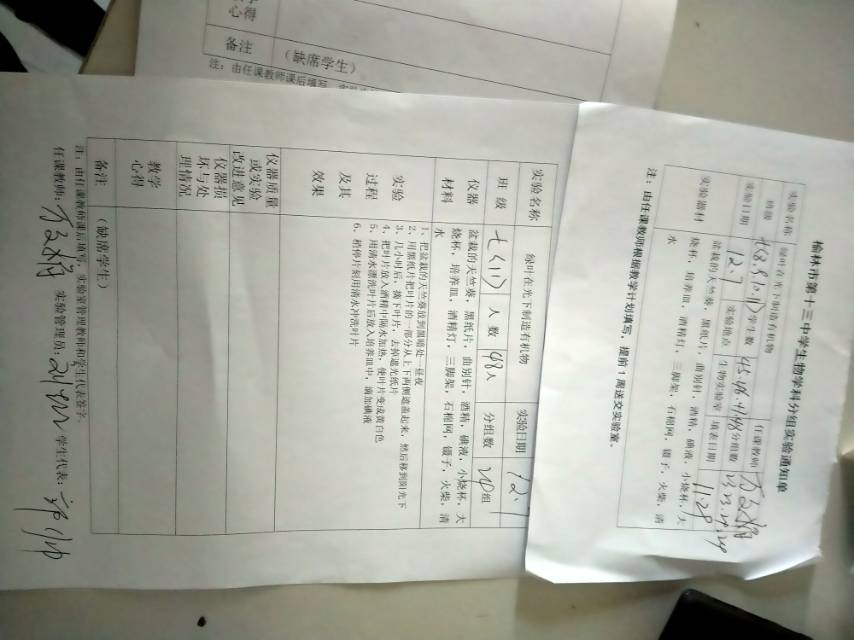 心得
备注 (缺席学生)
注：由任课教师课后填写，
榆林市第十三中学生物学科分组实验通知单
实验名称 绿叶在光下制造有机物 任课教师
班级 学生数 分组数
实验日期 12.7 实验地点 生物实验室 填表日期 11.28
实验器材 盆栽的天竺葵，黑纸片，曲别针，酒精，碘液，小烧杯，大
烧杯，培养皿，酒精灯，三脚架，石棉网，镊子，火柴，清
水
注：由任课教师根据教学计划填写，提前1周送交实验室。
实验名称 绿叶在光下制造有机物 实验日期 12.7
班级 七(11) 人数 48人 分组数 24组
仪器
材料 盆栽的天竺葵，黑纸片，曲别针，酒精，碘液，小烧杯，大
烧杯，培养皿，酒精灯，三脚架，石棉网，镊子，火柴，清
水
实验
过程
及其
效果
1、把盆栽的天竺葵放到黑暗处一昼夜
2、用黑纸片把叶片的一部分从上下两侧遮盖起来，然后移到阳光下
3、几小时后，摘下叶片，去掉遮光纸片
4、把叶片放入酒精中隔水加热，使叶片变成黄白色
5、用清水漂洗叶片后放入培养皿中，滴加碘液
6、稍停片刻用清水冲洗叶片
仪器质量
或实验
改进意见
仪器损
坏与处
理情况
教学
心得
备注 (缺席学生)
注：由任课教师课后填写，实验室管理教师和学生代表签字.
任课教师： 实验管理员： 学生代表：